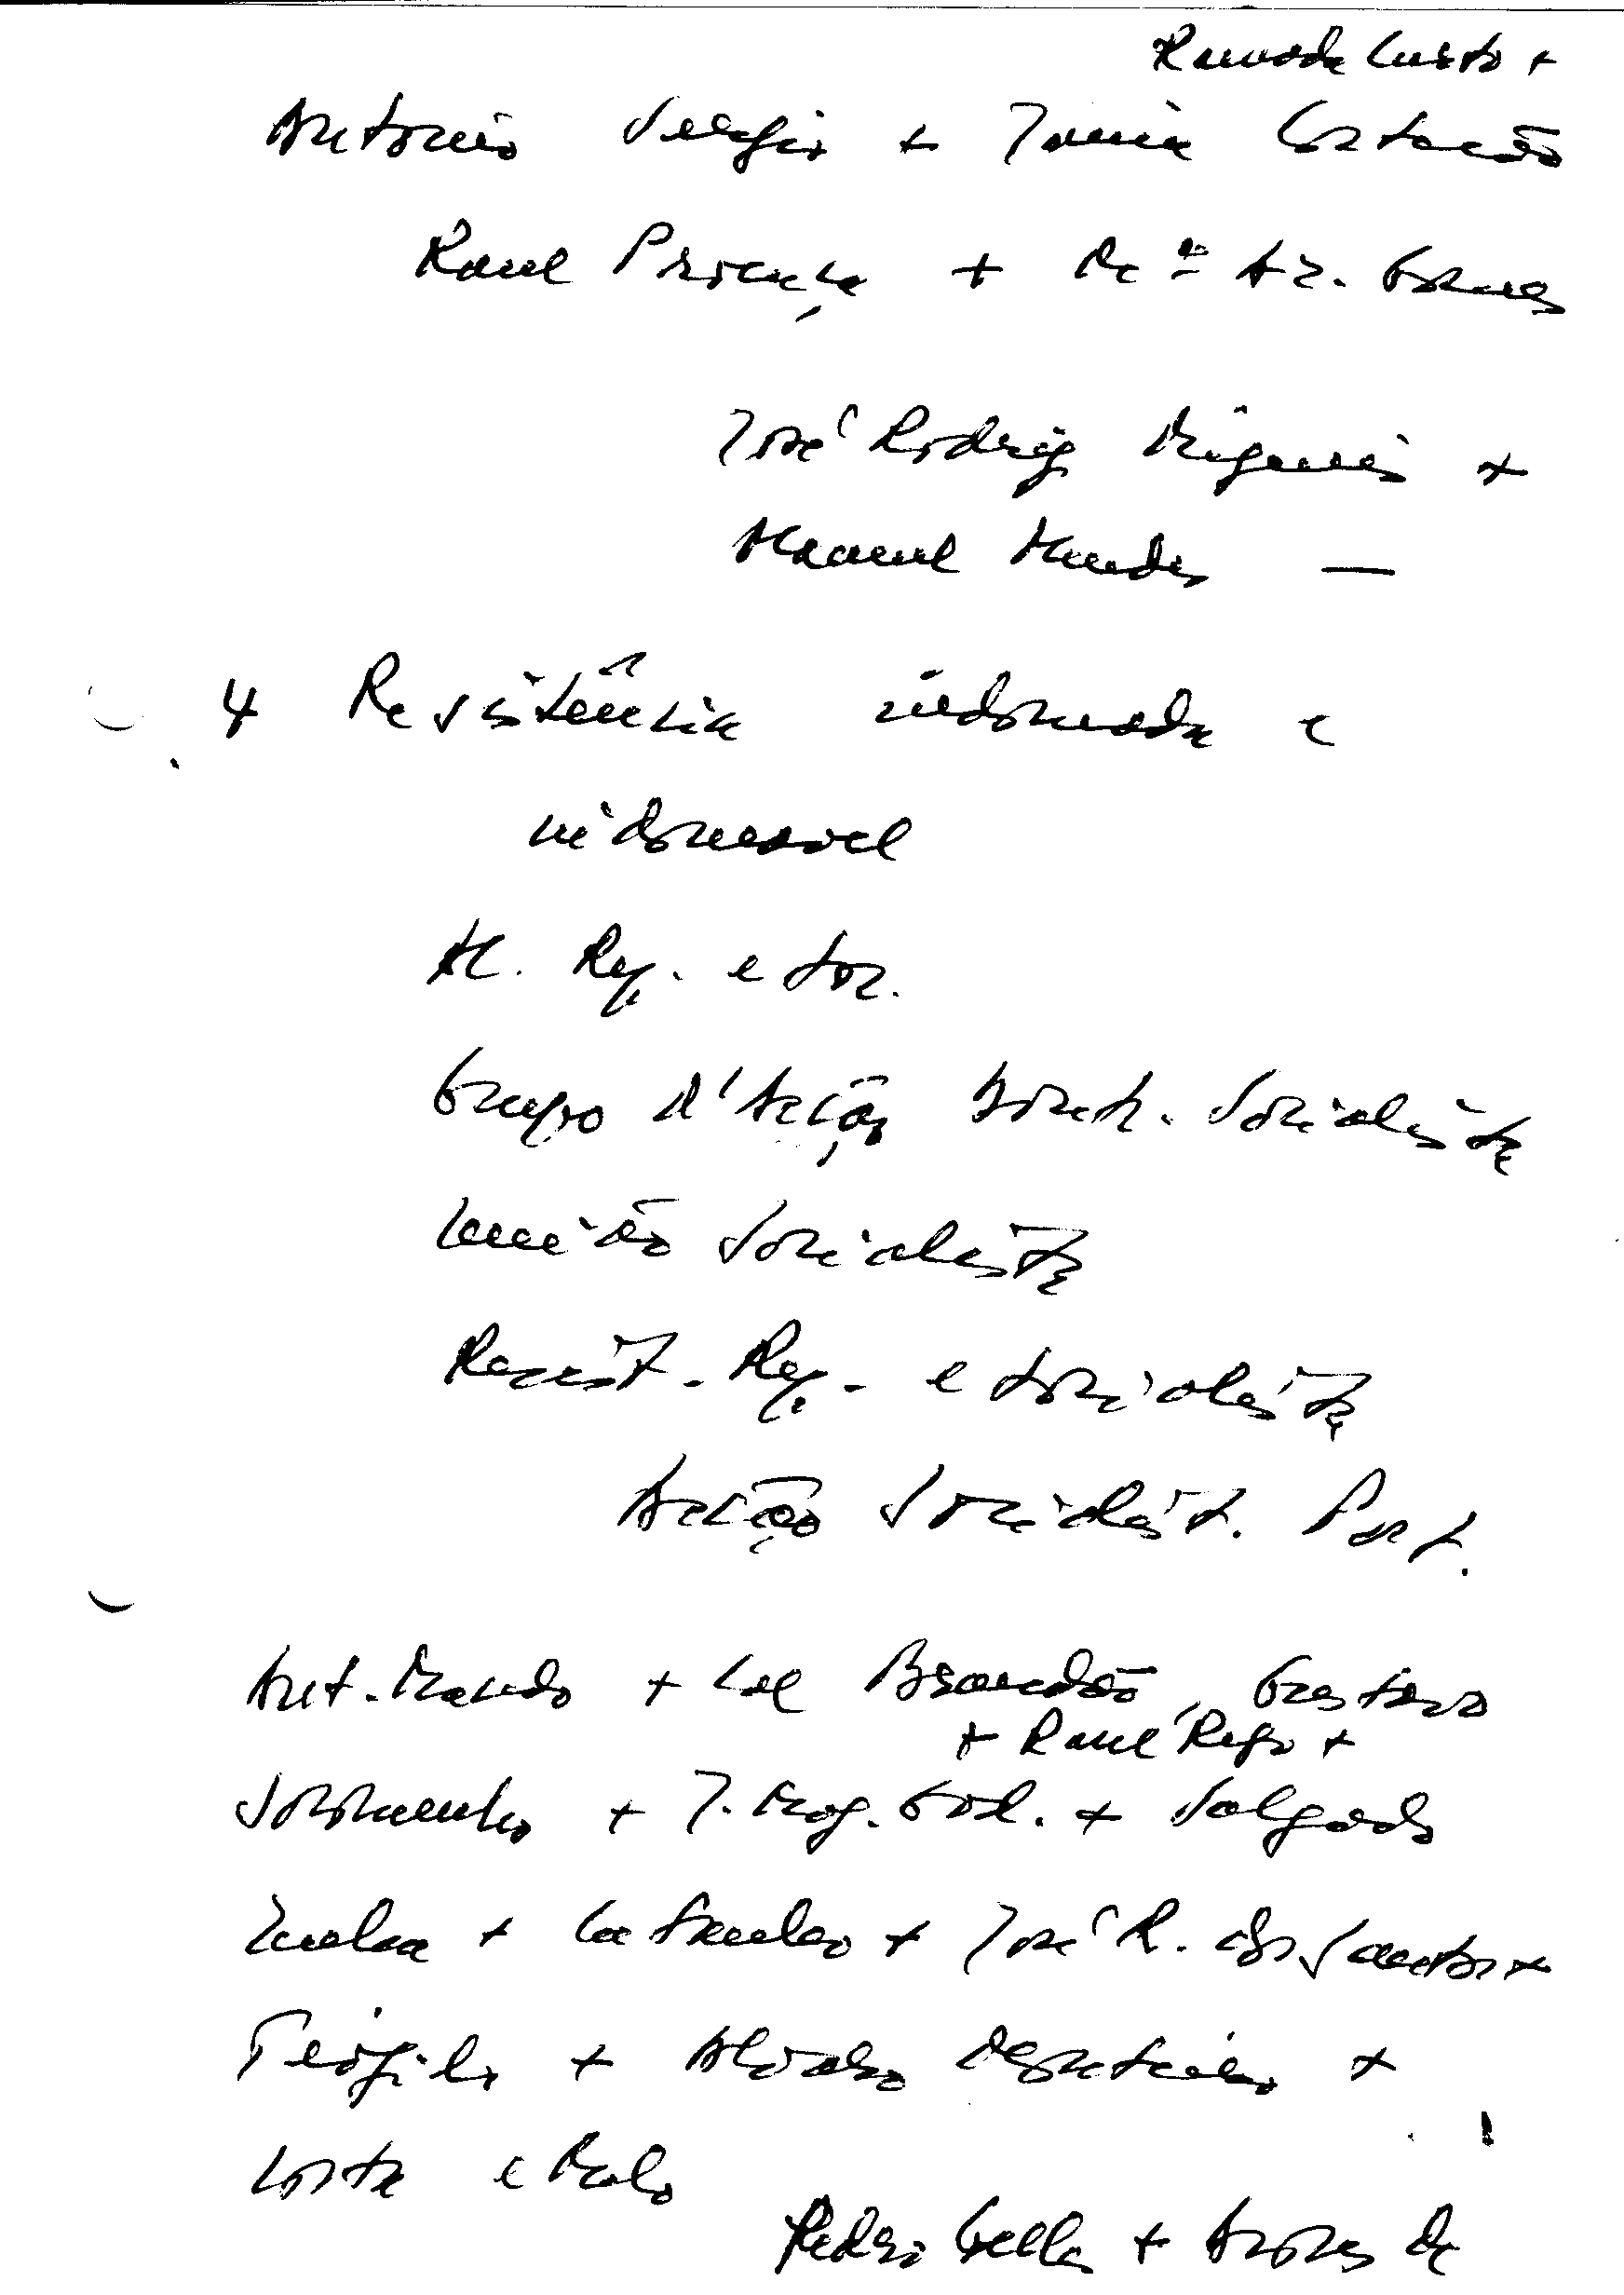 Ramada Curto +
António Sérgio + Jaime Cortesão
Raul Proença + Mº Az. Gomes
José Rodrig Miguéis +
Manuel Mendes —
4 Resistência indomada e
indomável
Al. Rep. e Soc.
Grupo d'Acção Dout. Socialista
União Socialista
Resist. Rep. e Socialista
Acção Socialist. Port.
Ant. Macedo + Cal Brandão, Gustavo
+ Raul Rego +
Soromenho + J. Mag. God. + Salgado
Zenha + Catanho + José R. dos Santos +
Teófilo + Álvaro Monteiro +
Costa e Melo
Pedro Coelho + Arons de